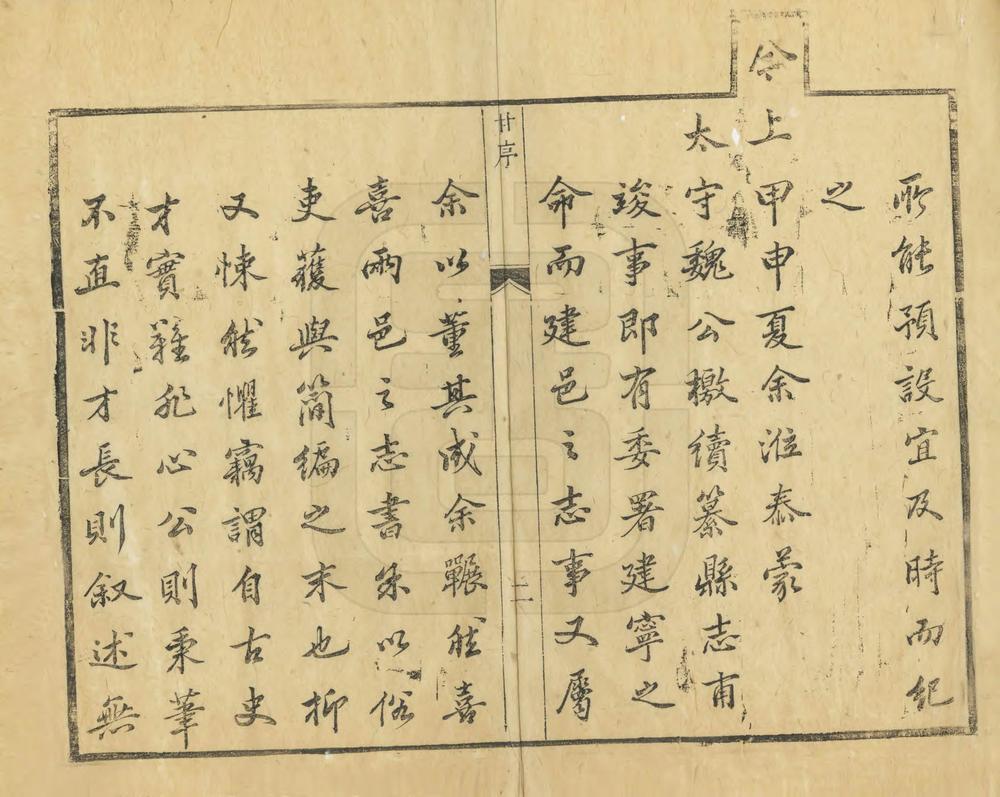 所能預設宜及時而紀
之
今上甲申夏余涖泰蒙
太守魏公檄續纂縣志甫
竣事即有委署建寧之
命而建邑之志事又屬
甘序
二
余以董其成余冁然喜
喜兩邑之志書朱以俗
吏獲與簡編之末也抑
又悚然懼竊謂自古史
才實難非心公則秉筆
不直非才長則叙述無